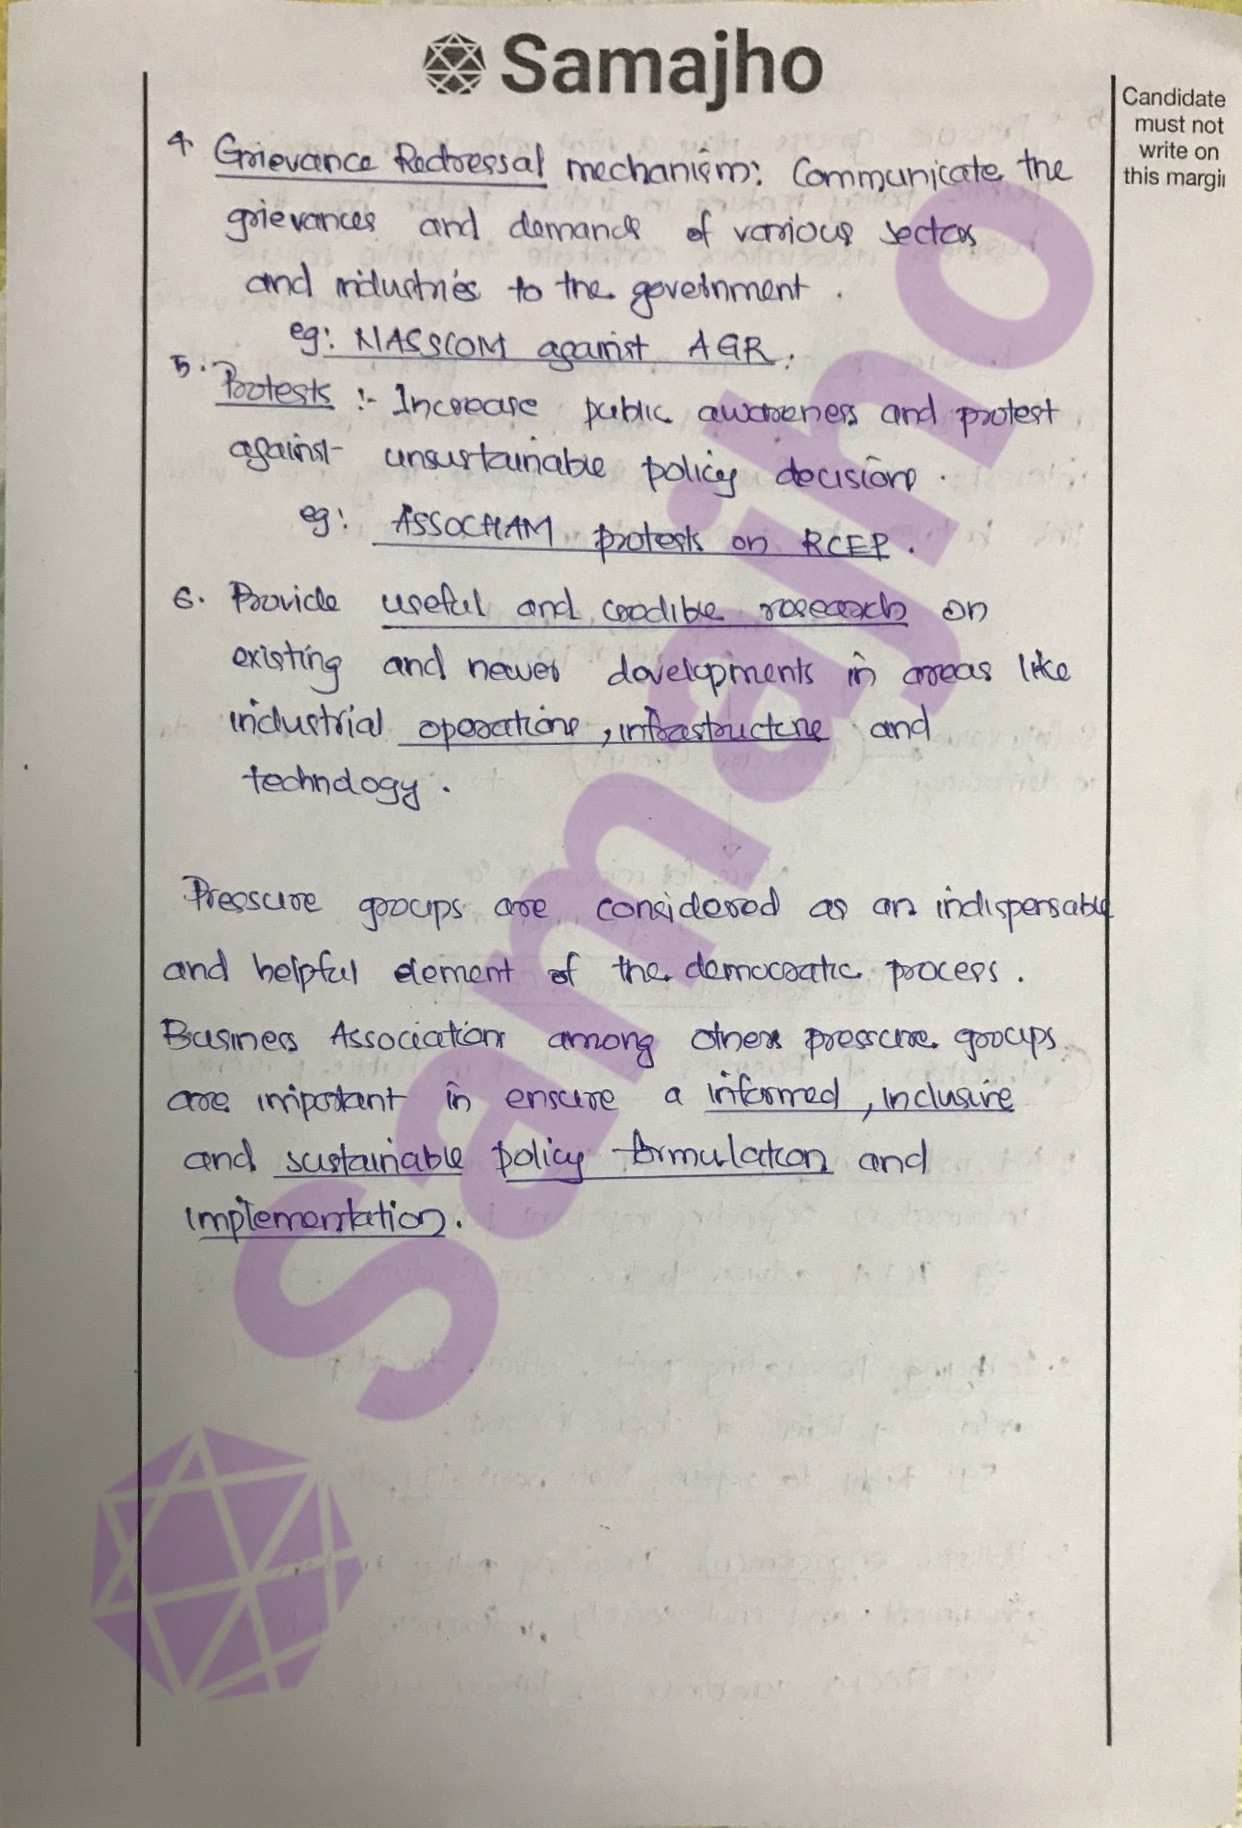 Samajho
Candidate
must not
write on
this margin
4. Grievance Redressal mechanism: Communicate the
grievances and demands of various sectors
and industries to the government.
eg: NASSCOM against AGR.
5. Protests :- Increase public awareness and protest
against unsustainable policy decisions.
eg: ASSOCHAM protests on RCEP.
6. Provide useful and credible research on
existing and newer developments in areas like
industrial operations, infrastructure and
technology.
Pressure groups are considered as an indispensable
and helpful element of the democratic process.
Business Associations among other pressure groups
are important in ensure a informed, inclusive
and sustainable policy formulation and
implementation.
Samajho